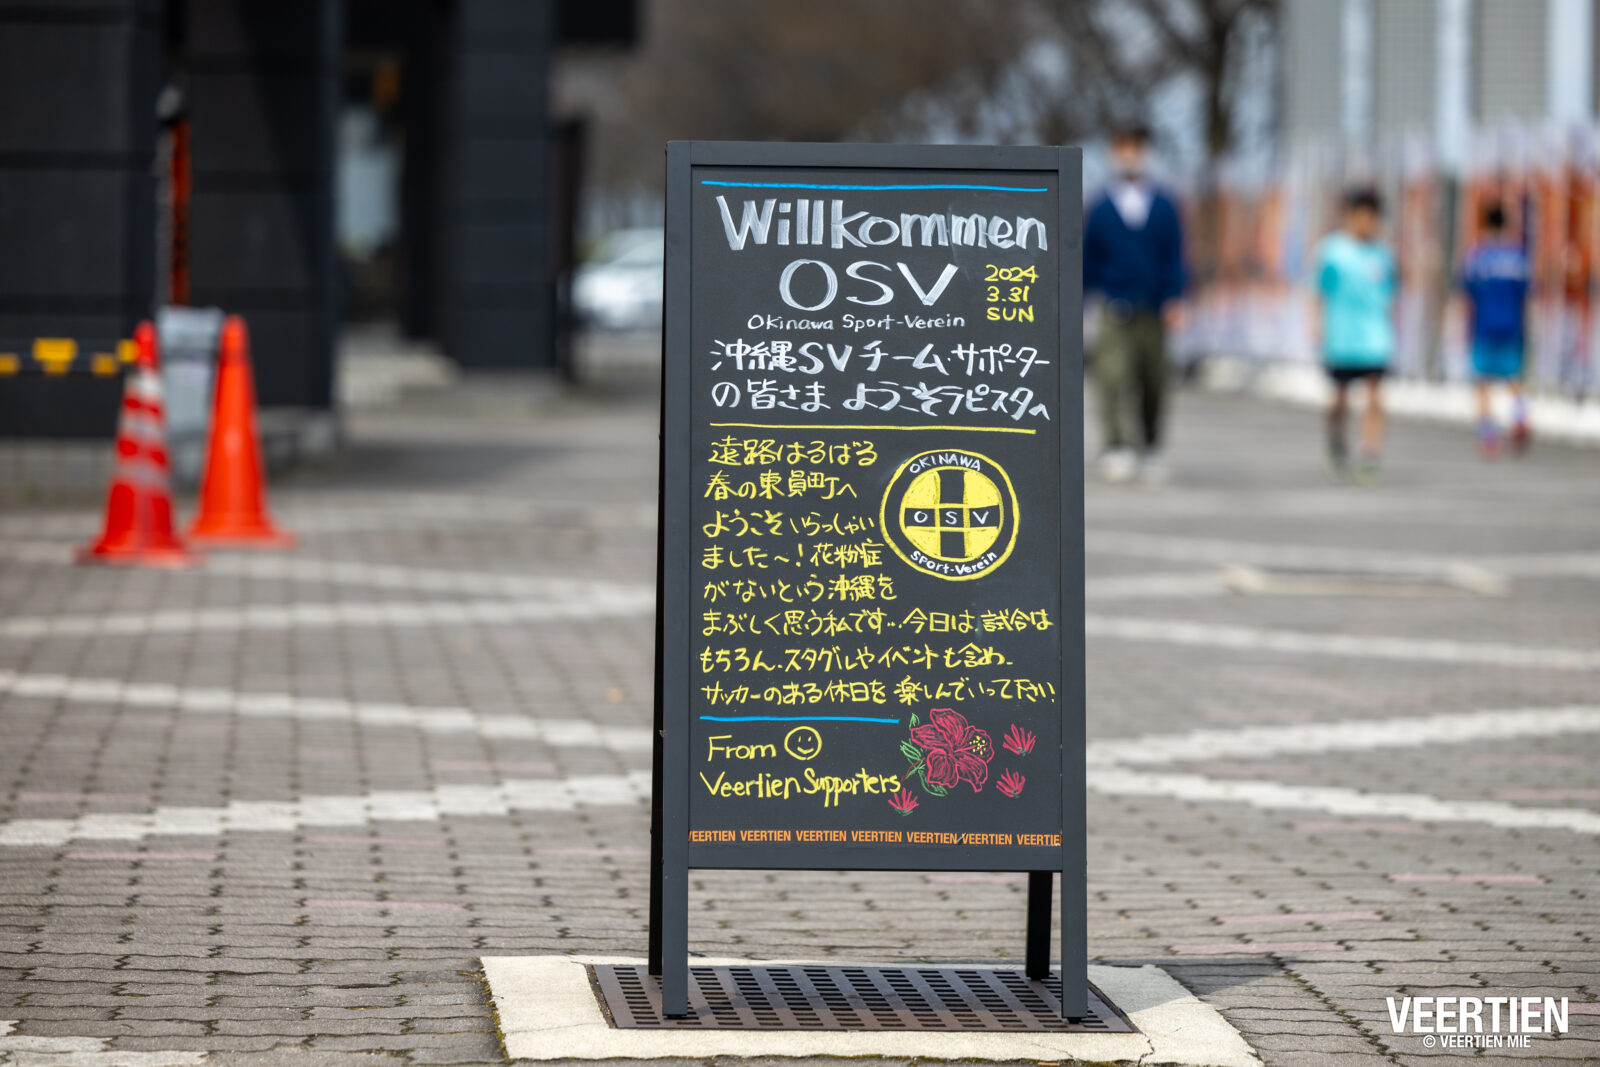 Willkommen
OSV
2024
3.31
SUN
Okinawa Sport-Verein
沖縄SVチーム・サポーター
の皆さま ようこそラピスタへ
遠路はるばる
春の東員町へ
ようこそいらっしゃい
ました〜！花粉症
がないという沖縄を
まぶしく思う私です…今日は、試合は
もちろん、スタグルやイベントも含め、
サッカーのある休日を楽しんでいって下さい
OKINAWA
OSV
Sport-Verein
From
Veertien Supporters
VEERTIEN VEERTIEN VEERTIEN VEERTIEN VEERTIEN VEERTIEN VEERTIE
VEERTIEN
© VEERTIEN MIE